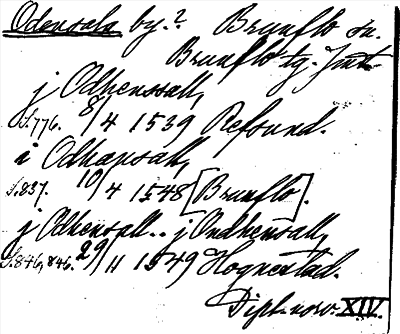 Odensala by.? Brunflo sn.
Brunflo tg. Jmtl.
j Odhenssall,
S.776. 8/4 1539 Refsund.
i Odhansall,
S.837. 10/4 1548 [Brunflo].
j Odhensall.. j Ondhensall,
S.846, 846. 29/11 1549 Hognestad.
Dipl. norv. XIV.